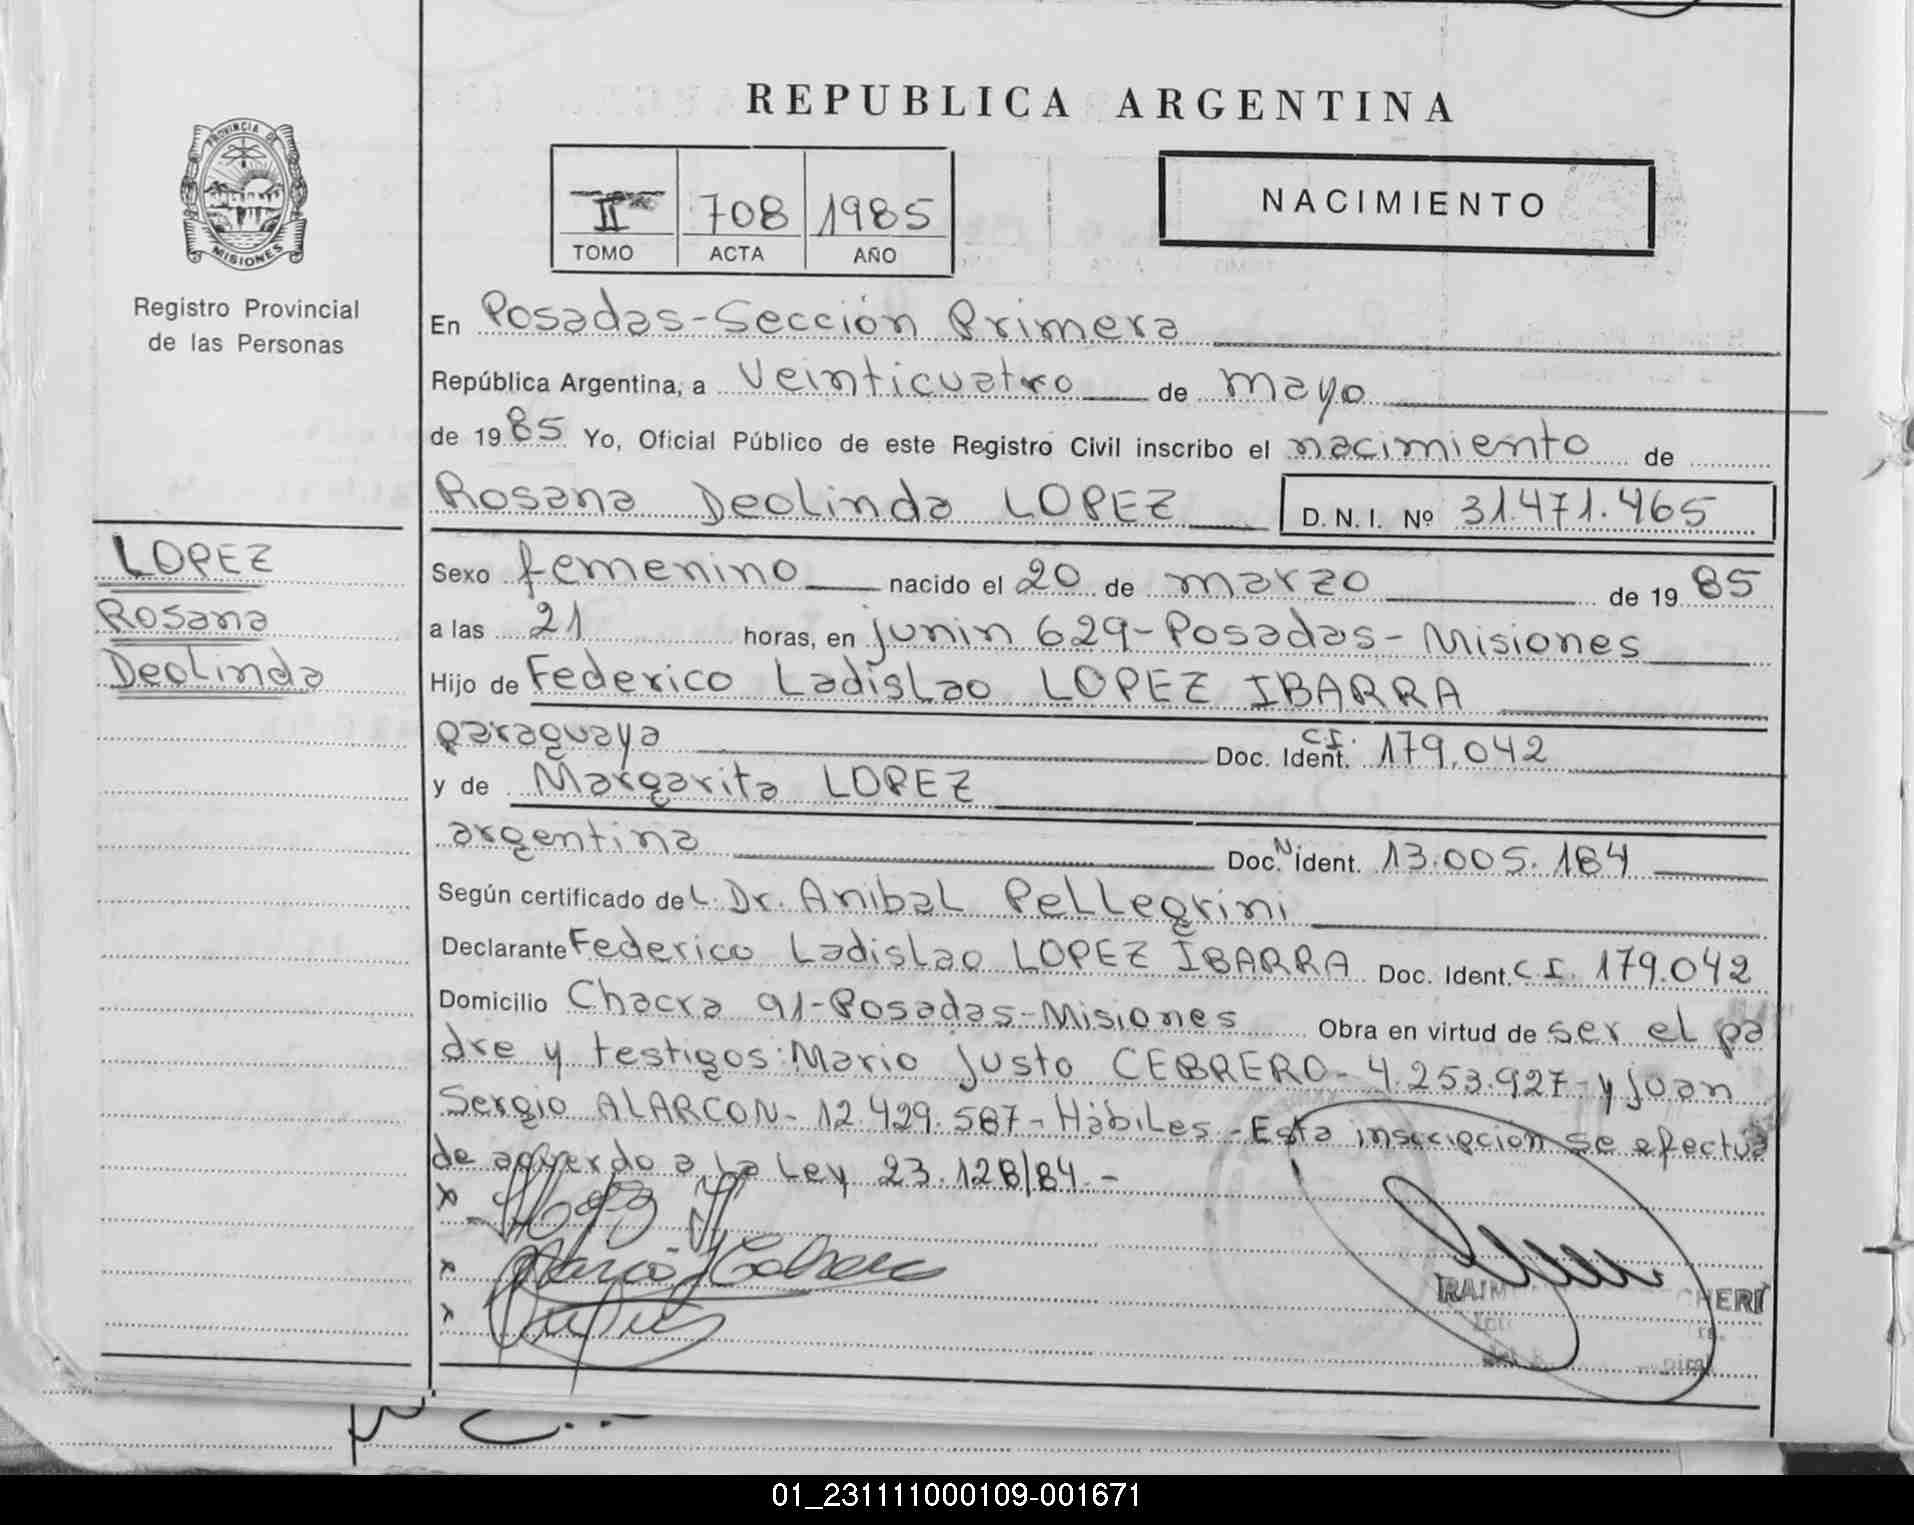 REPUBLICA ARGENTINA
PROVINCIA DE
MISIONES
Registro Provincial
de las Personas
II 708 1985
TOMO ACTA AÑO
NACIMIENTO
En Posadas-Sección Primera
República Argentina, a veinticuatro de mayo
de 1985 Yo, Oficial Público de este Registro Civil inscribo el nacimiento de
Rosana Deolinda LOPEZ D.N.I. Nº 31.471.465
LOPEZ
Rosana
Deolinda
Sexo femenino nacido el 20 de marzo de 1985
a las 21 horas, en junin 629-Posadas-Misiones
Hijo de Federico Ladislao LOPEZ IBARRA
paraguaya Doc. Ident. C.I. 179.042
y de Margarita LOPEZ
argentina Doc. N. Ident. 13.005.184
Según certificado del Dr. Anibal Pellegrini
Declarante Federico Ladislao LOPEZ IBARRA Doc. Ident. C.I. 179.042
Domicilio Chacra 91-Posadas-Misiones Obra en virtud de ser el pa
dre y testigos: Mario justo CEBRERO-4.253.927-y juan
Sergio ALARCON-12.429.587-Hábiles-Esta inscripcion se efectua
de acuerdo a la Ley 23.128/84.-
x
x
x
01_231111000109-001671